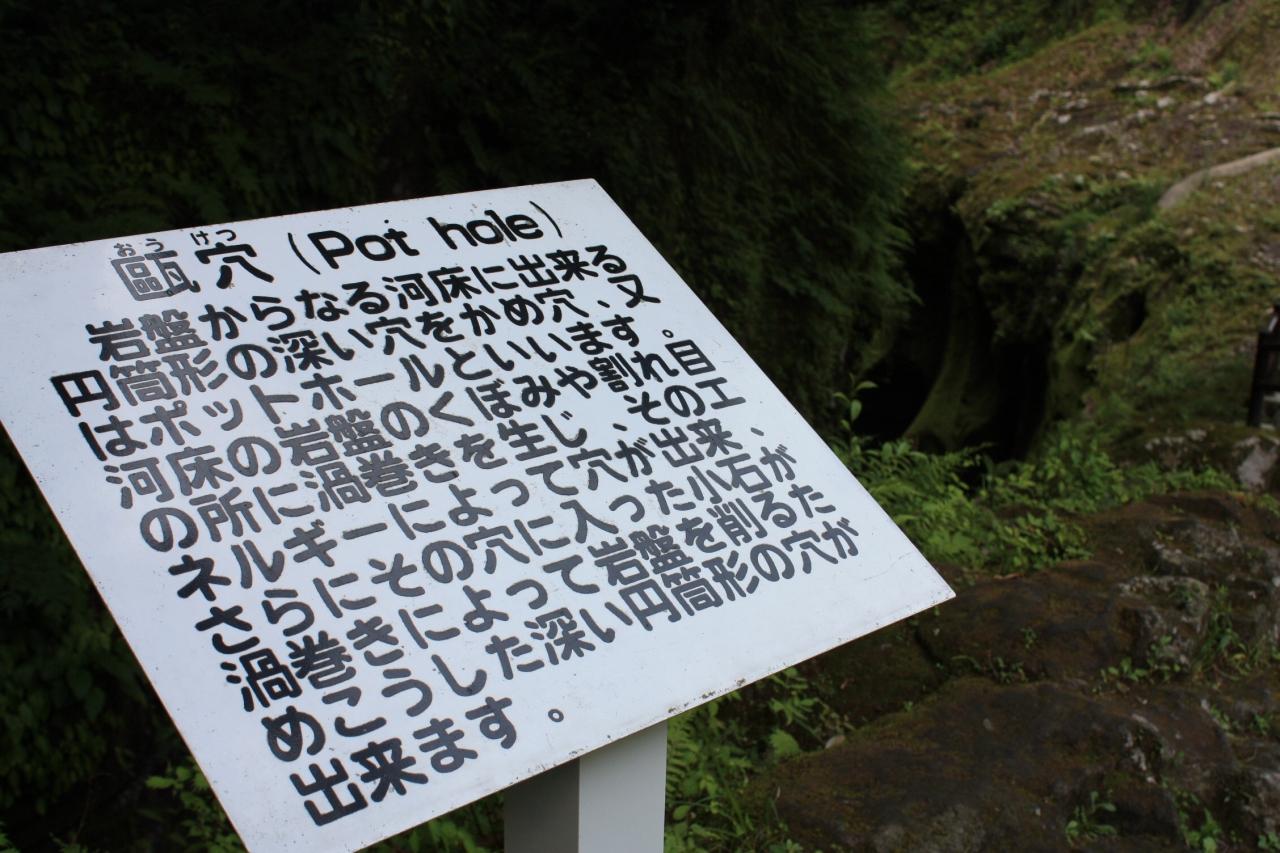 おうけつ
甌穴（Pot hole）
岩盤からなる河床に出来る
円筒形の深い穴をかめ穴、又
はポットホールといいます。
河床の岩盤のくぼみや割れ目
の所に渦巻きを生じ、そのエ
ネルギーによって穴が出来、
さらにその穴に入った小石が
渦巻きによって岩盤を削るた
めこうした深い円筒形の穴が
出来ます。